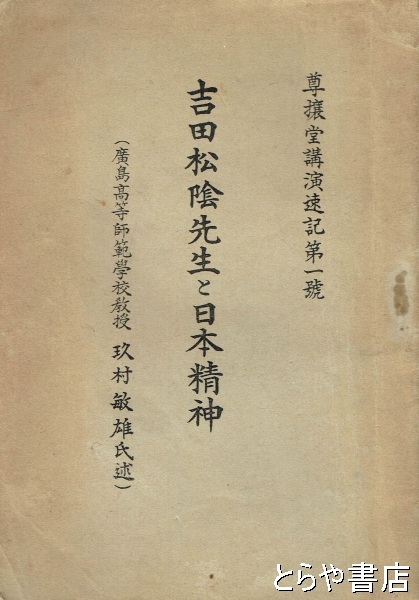 尊攘堂講演速記第一號
吉田松陰先生と日本精神
(廣島高等師範學校教授 玖村敏雄氏述)
とらや書店